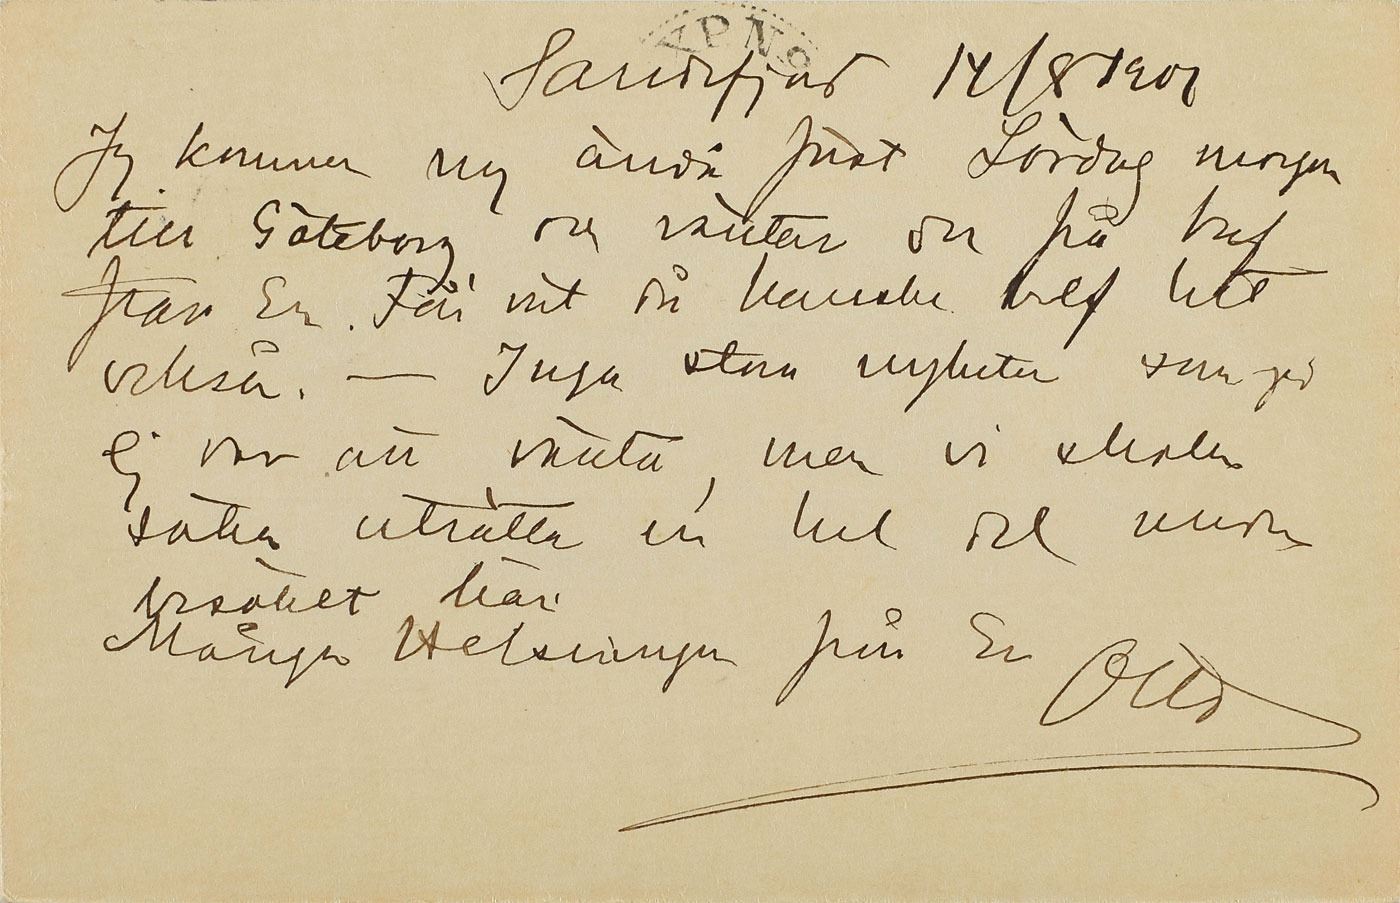 XPNO
Sandefjord 14/8 1901
Jag kommer nog ändå först Lördag morgon
till Göteborg och väntar der få bref
från Er. Får väl då kanske bref hit
också. — Inga stora nyheter som ju
ej var att vänta, men vi skola
söka uträtta en hel del under
besöket här.
Många Helsningar från Er Otto